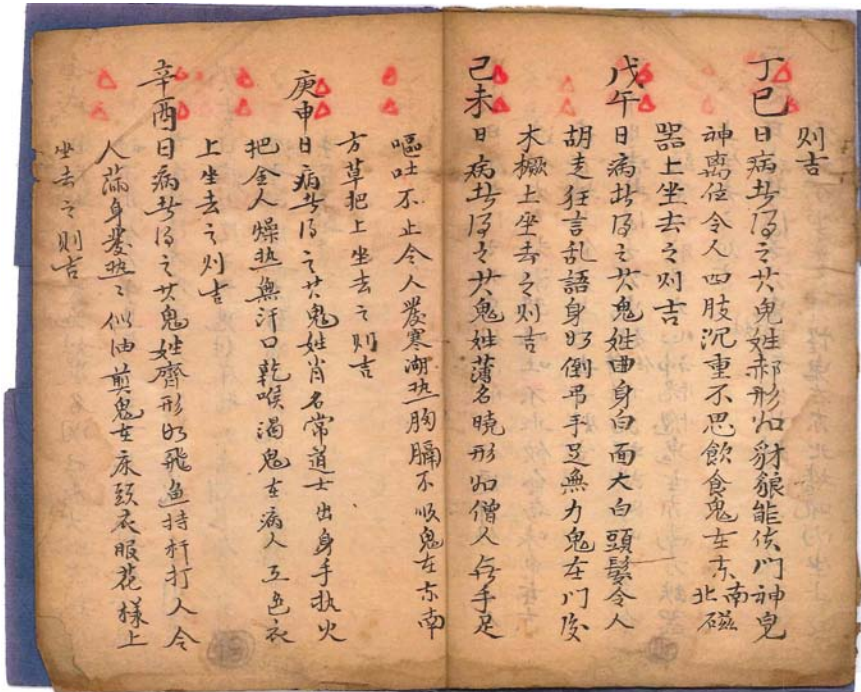 则吉
丁巳日病者得之其鬼姓郝形如豺狼能使门神鬼
神离位令人四肢沉重不思飲食鬼在东南北磁
器上坐去之则吉
戊午日病者得之其鬼姓曲身白面大白頭髮令人
胡走狂言乱語身如倒吊手足無力鬼在门后
木橛上坐去之则吉
己未日病者得之其鬼姓蒲名曉形如僧人無手足
嘔吐不止令人發寒潮热胸膈不順鬼在东南
方草把上坐去之则吉
庚申日病者得之其鬼姓肖名常道士出身手执火
把令人燥热無汗口乾喉渴鬼在病人五色衣
上坐去之则吉
辛酉日病者得之其鬼姓齊形如飛魚持杆打人令
人滿身發热热似油煎鬼在床頭衣服花樣上
坐去之则吉